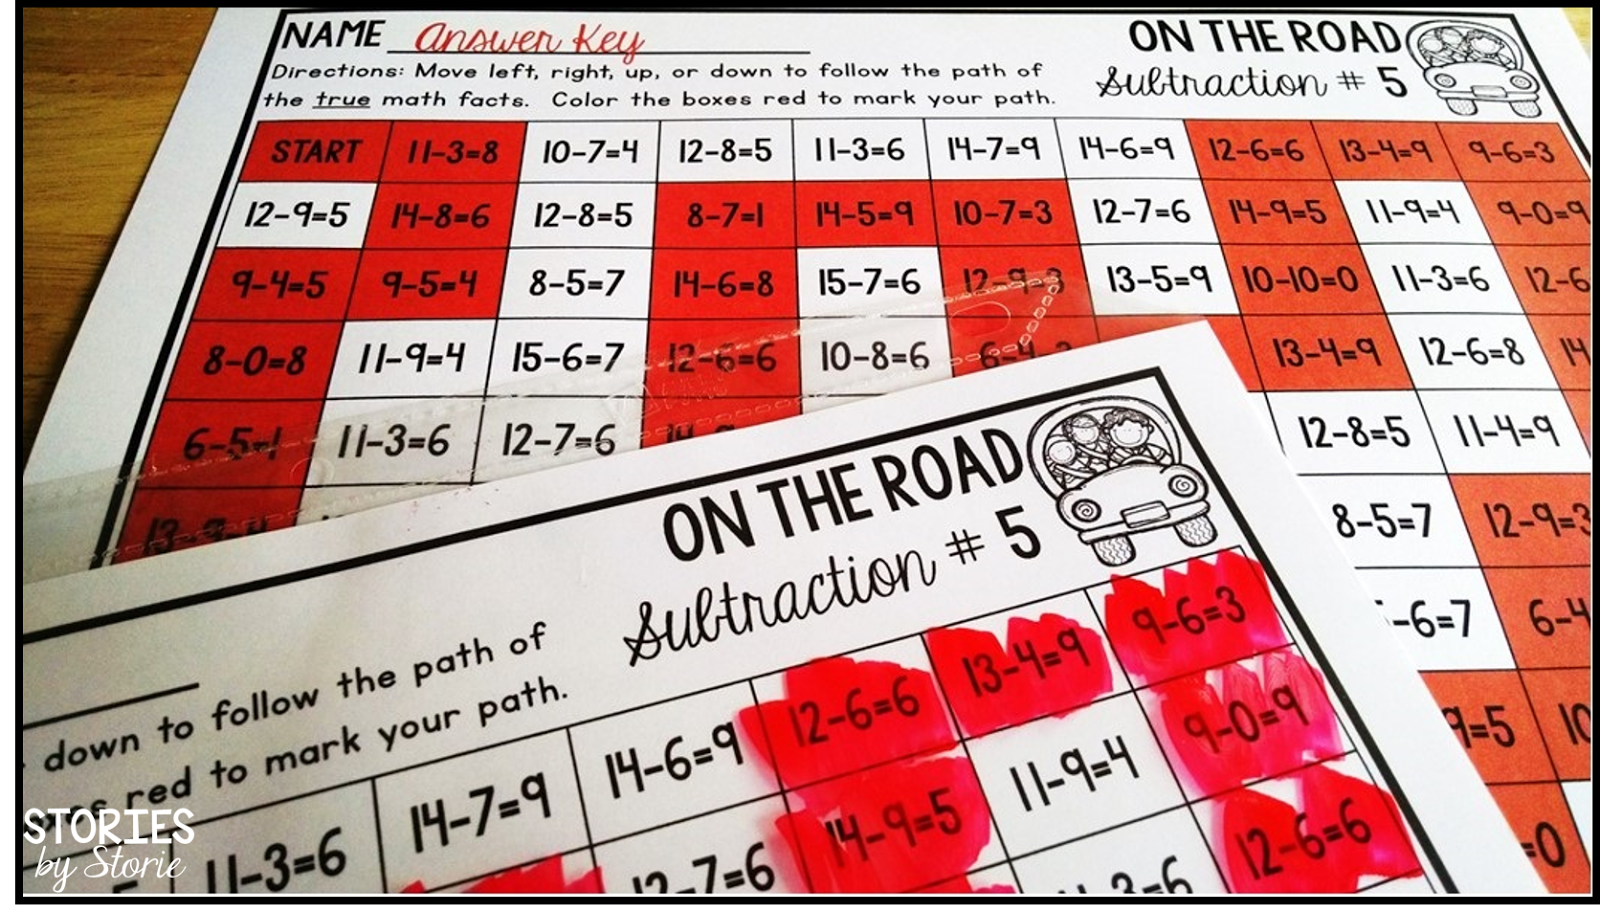 NAME Answer Key
ON THE ROAD
Subtraction # 5
Directions: Move left, right, up, or down to follow the path of
the true math facts. Color the boxes red to mark your path.
START 11-3=8 10-7=4 12-8=5 11-3=6 14-7=9 14-6=9 12-6=6 13-4=9 9-6=3
12-9=5 14-8=6 12-8=5 8-7=1 14-5=9 10-7=3 12-7=6 14-9=5 11-9=4 9-0=9
9-4=5 9-5=4 8-5=7 14-6=8 15-7=6 12-9=3 13-5=9 10-10=0 11-3=6 12-6
8-0=8 11-9=4 15-6=7 12-6=6 10-8=6 13-4=9 12-6=8 14
6-5=1 11-3=6 12-7=6 12-8=5 11-4=9
8-5=7 12-9=3
-6=7 6-4
9=5 10
=0
ON THE ROAD
Subtraction # 5
down to follow the path of
red to mark your path.
11-3=6 14-7=9 14-6=9 12-6=6 13-4=9 9-6=3
12-7=6 14-9=5 11-9=4 9-0=9
12-6=6
STORIES
by Storie